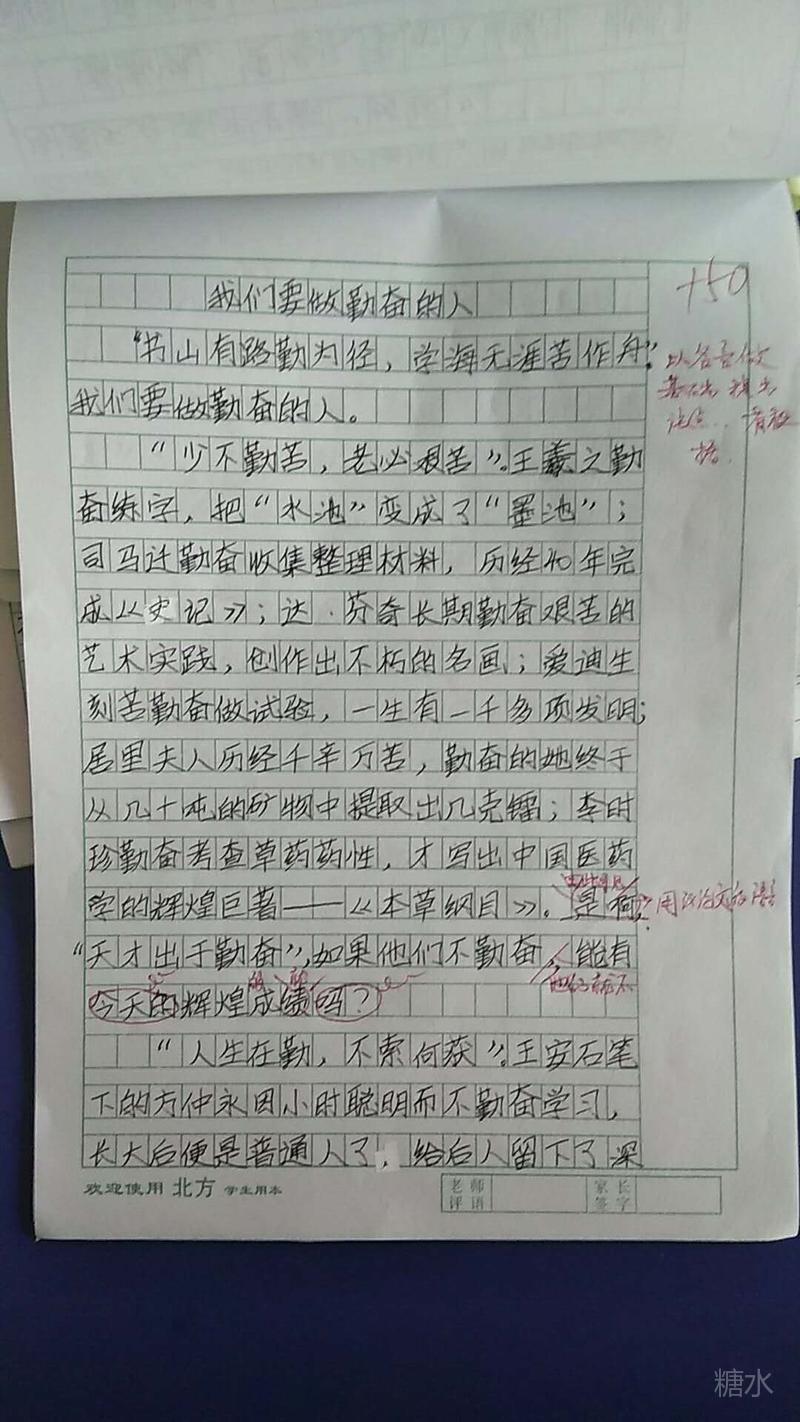 我们要做勤奋的人
+50
"书山有路勤为径，学海无涯苦作舟"。
我们要做勤奋的人。
以名言做
"少不勤苦，老必艰苦"。王羲之勤
奋练字，把"水池"变成了"墨池"；
司马迁勤奋收集整理材料，历经40年完
成《史记》；达·芬奇长期勤奋艰苦的
艺术实践，创作出不朽的名画；爱迪生
刻苦勤奋做试验，一生有一千多项发明；
居里夫人历经千辛万苦，勤奋的她终于
从几十吨的矿物中提取出几克镭；李时
珍勤奋考查草药药性，才写出中国医药
学的辉煌巨著——《本草纲目》。是啊，
由此可见
"天才出于勤奋"，如果他们不勤奋，能有
他们就不
今天的辉煌成绩吗？
"人生在勤，不索何获"。王安石笔
下的方仲永因小时聪明而不勤奋学习，
长大后便是普通人了，给后人留下了深
欢迎使用 北方 学生用本
老师评语
家长签字
糖水